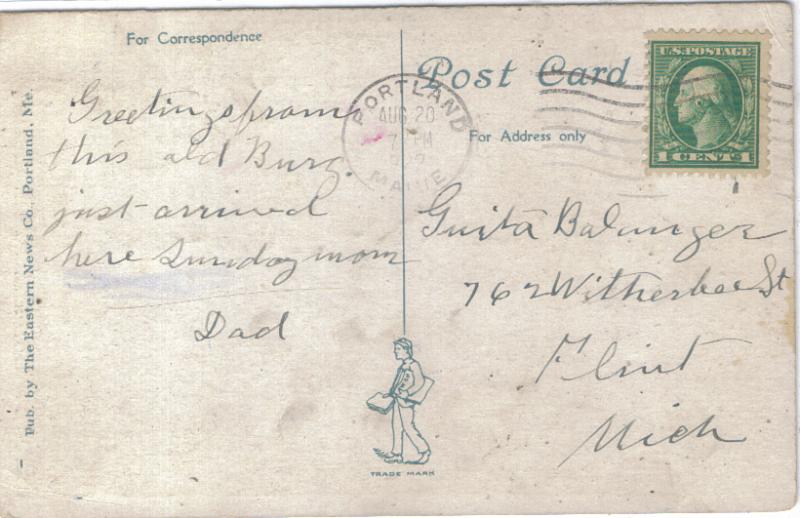 For Correspondence
Post Card
For Address only
PORTLAND
AUG 20
7 PM
MAINE
U.S. POSTAGE
1 CENT 1
Greetings from
this old Burg.
just arrived
here Sunday morn
Dad
762 Witherbee St
Flint
Mich
TRADE MARK
Pub. by The Eastern News Co., Portland, Me.